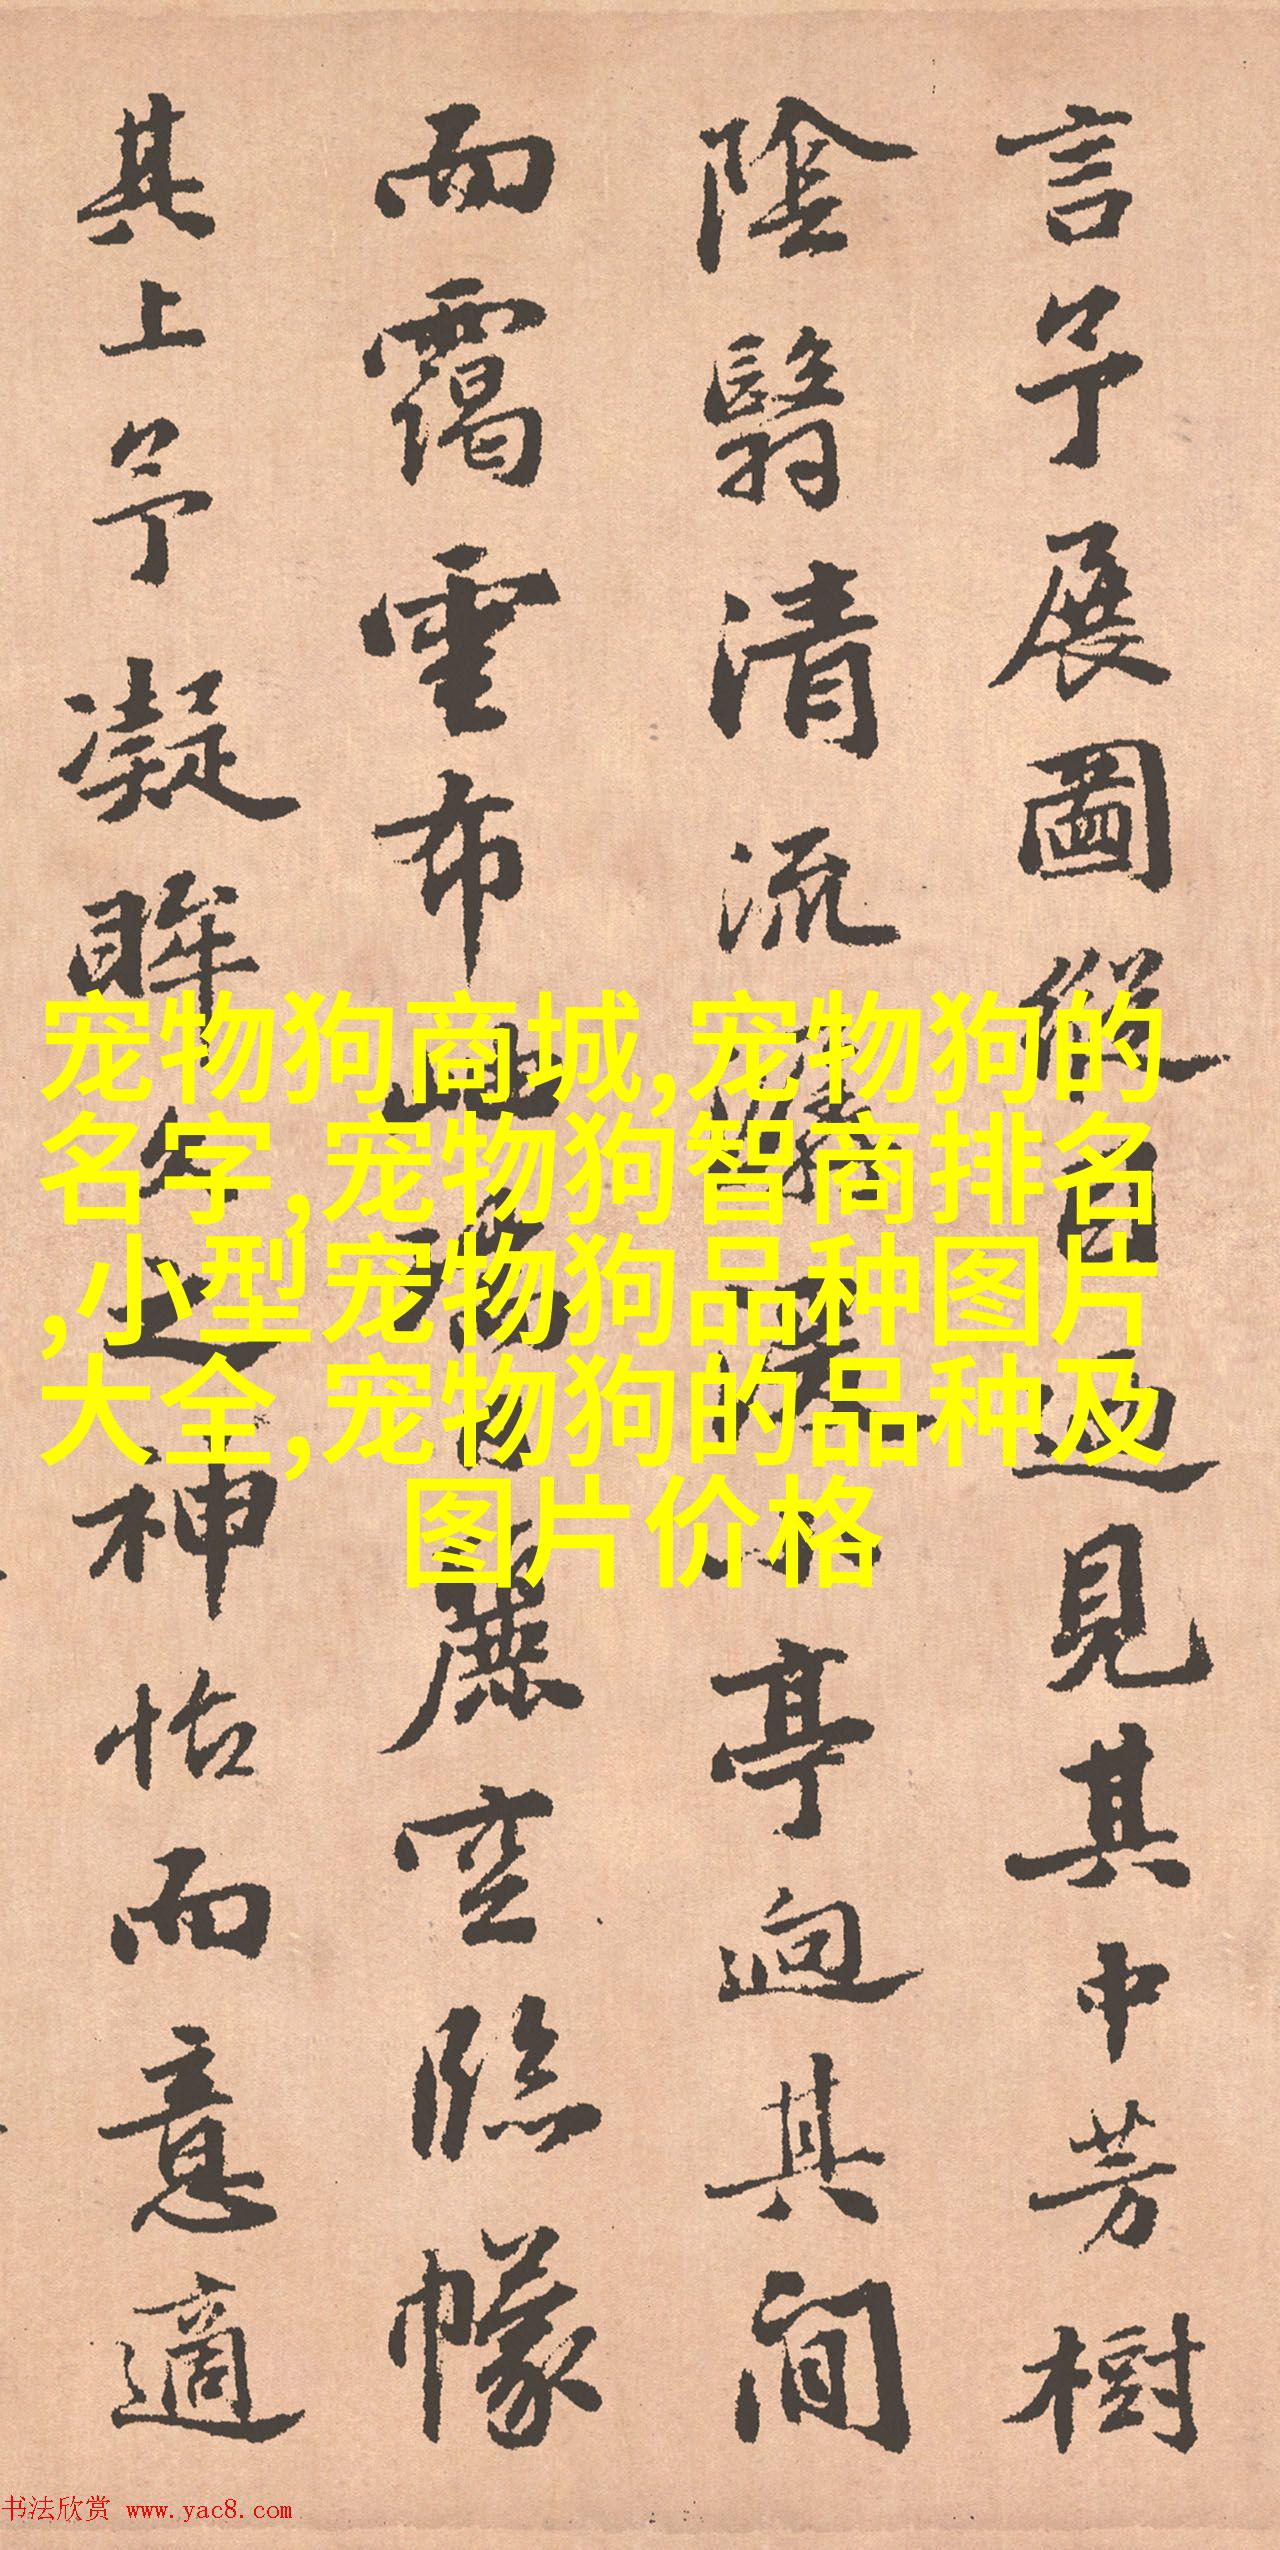 言予展圖見其中芳樹
陰翳清流亭迥其間
而靄雲布空臨幪
其上予凝眸久之神怡而意適
宠物狗商城,宠物狗的
名字,宠物狗智商排名
,小型宠物狗品种图片
大全,宠物狗的品种及
图片价格
书法欣赏 www.yac8.com